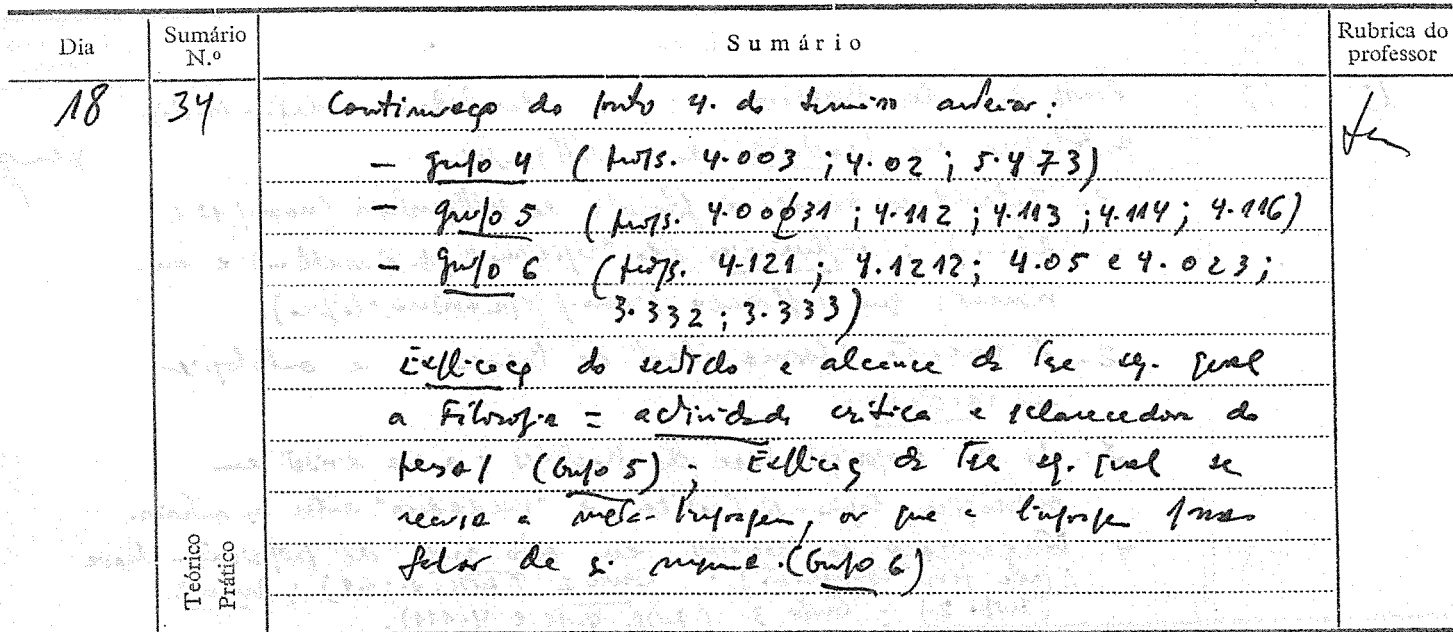 Dia
Sumário N.º
Sumário
Rubrica do professor
18 34 Continuação do ponto 4. do sumário anterior:
— grupo 4 (props. 4.003 ; 4.02 ; 5.473)
— grupo 5 (props. 4.0031 ; 4.112 ; 4.113 ; 4.114 ; 4.116)
— grupo 6 (props. 4.121 ; 4.1212 ; 4.05 e 4.023 ;
3.332 ; 3.333)
Explicação do sentido e alcance da tese seg. qual
a Filosofia = actividade crítica e esclarecedora do
pensar (Grupo 5) ; Explicação da tese seg. qual se
recusa a meta-linguagem, ou que a linguagem possa
falar de si mesma. (Grupo 6)
Teórico
Prático